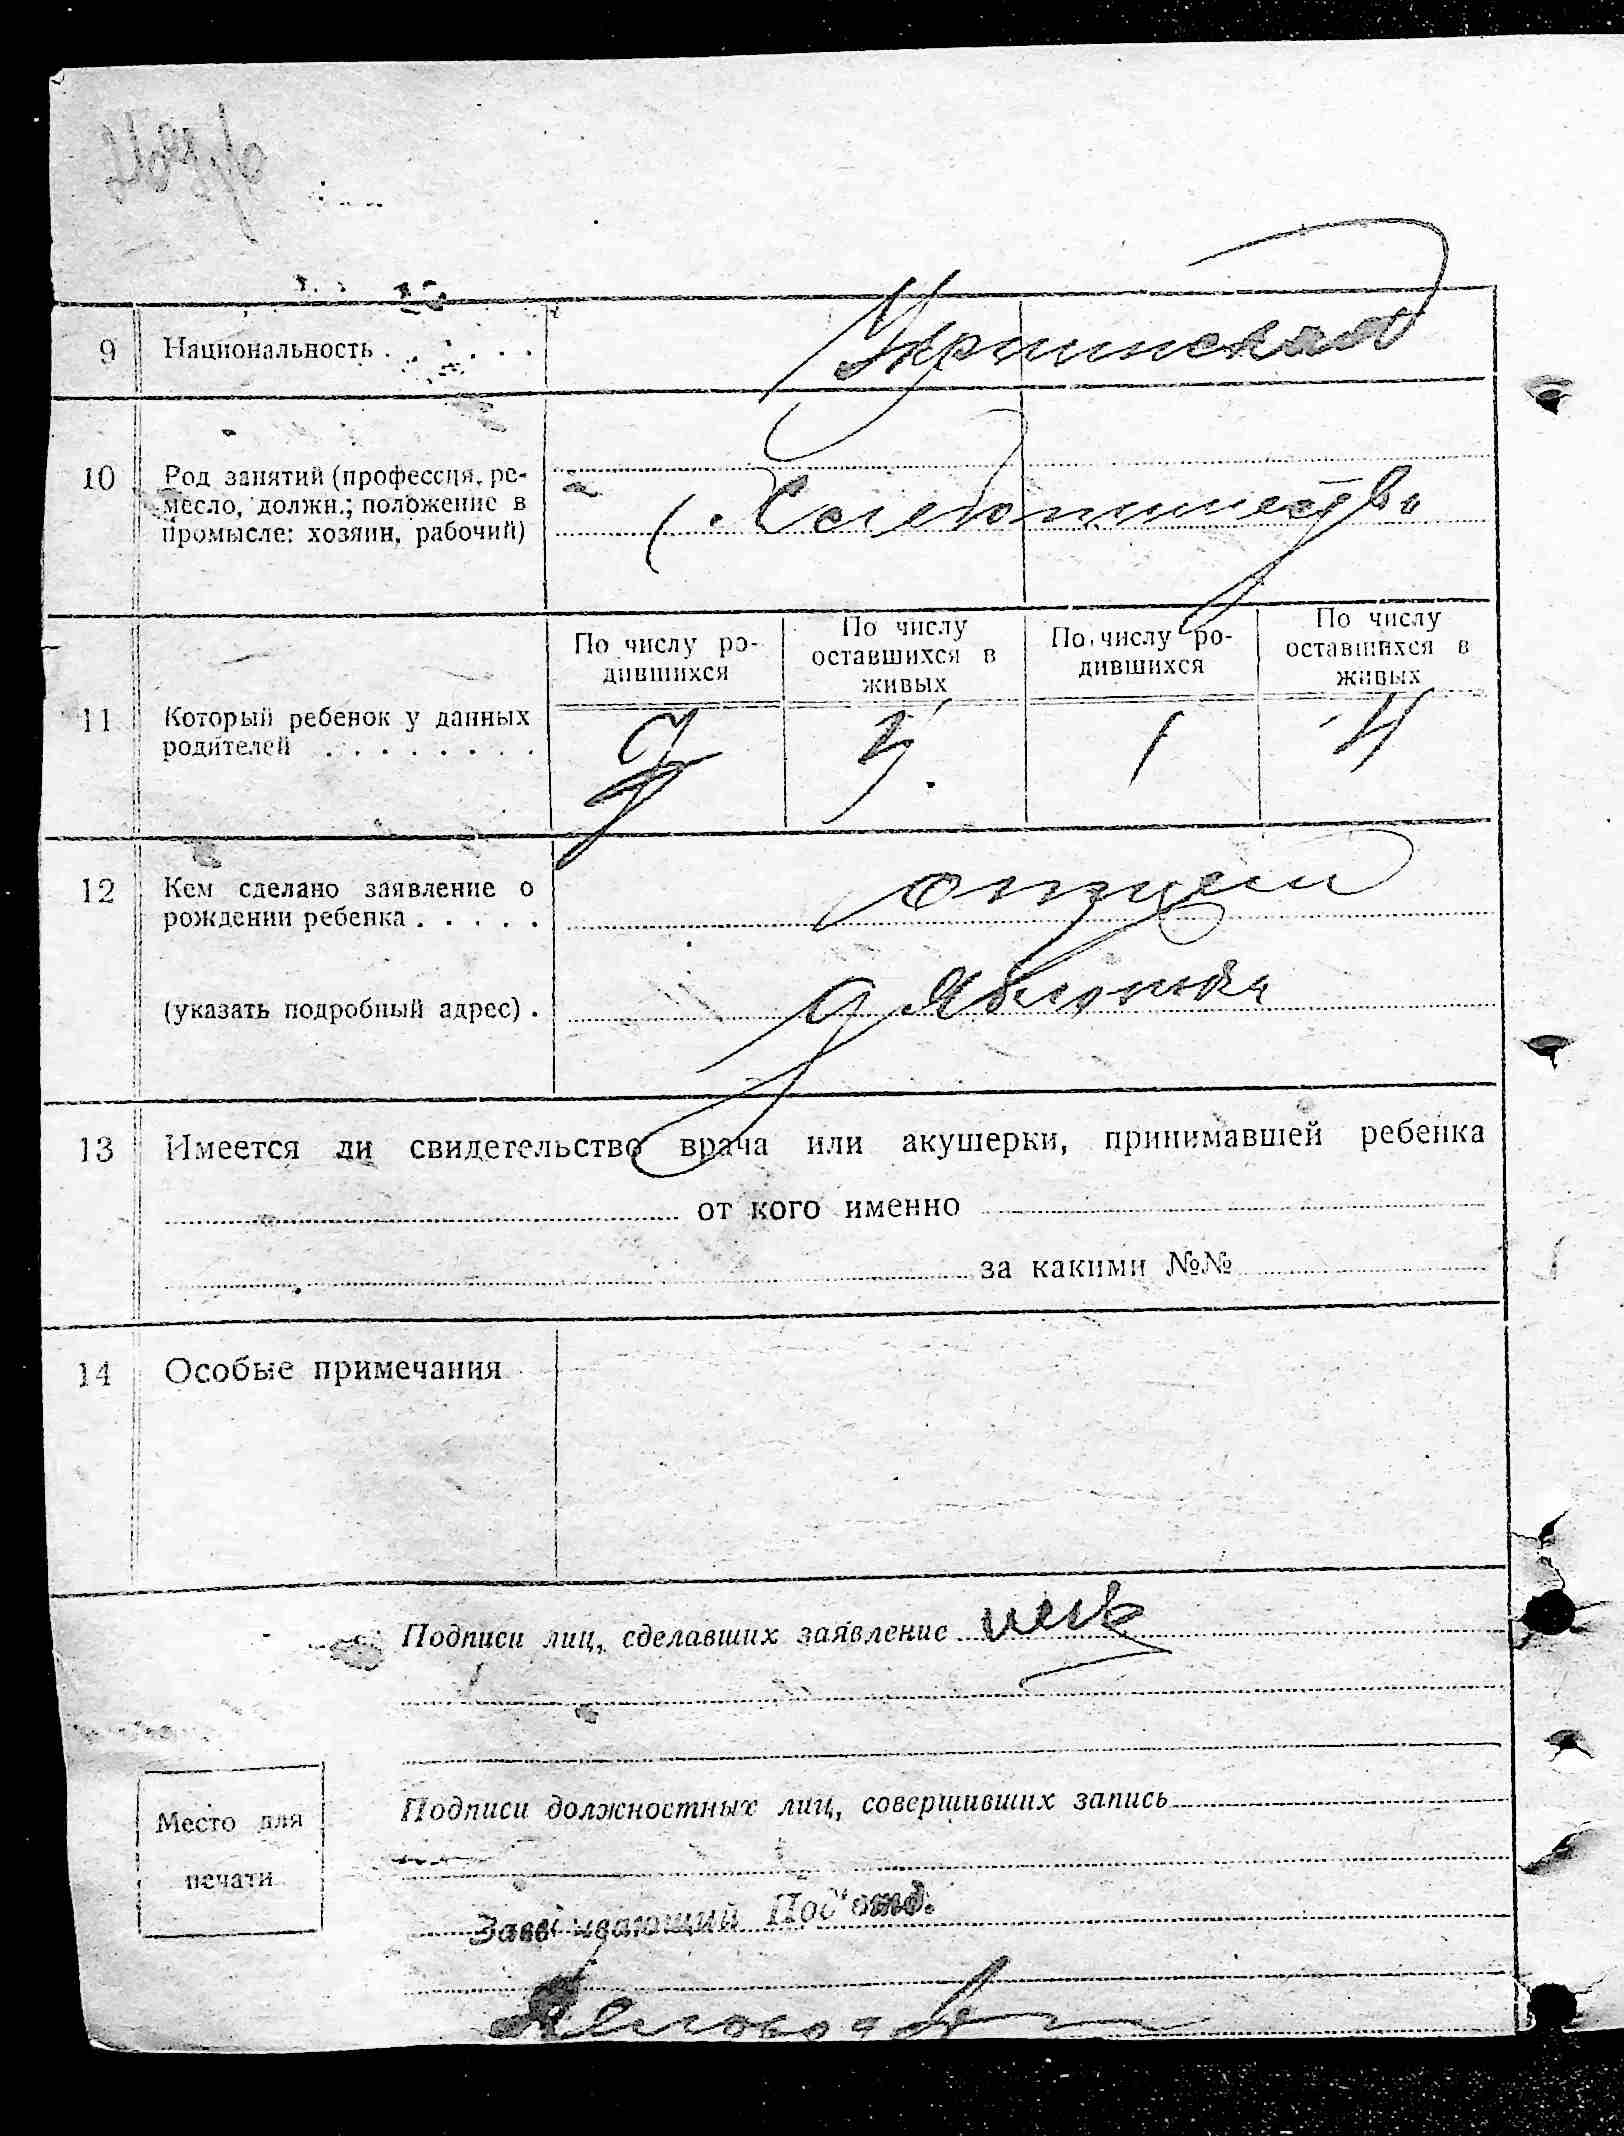 9 Национальность . . . . . . Украинская
10 Род занятий (профессия, ре-
месло, должн.; положение в
промысле: хозяин, рабочий)
Хлебопашество
По числу ро-
дившихся
По числу
оставшихся в
живых
По числу ро-
дившихся
По числу
оставшихся в
живых
11 Который ребенок у данных
родителей . . . . . . . .
12 Кем сделано заявление о
рождении ребенка . . . . . отцем
(указать подробный адрес) . д Яблоновка
13 Имеется ли свидетельство врача или акушерки, принимавшей ребенка
от кого именно
за какими №№
14 Особые примечания
Подписи лиц, сделавших заявление
Подписи должностных лиц, совершивших запись
Место для
печати
Заведывающий Под'отд.